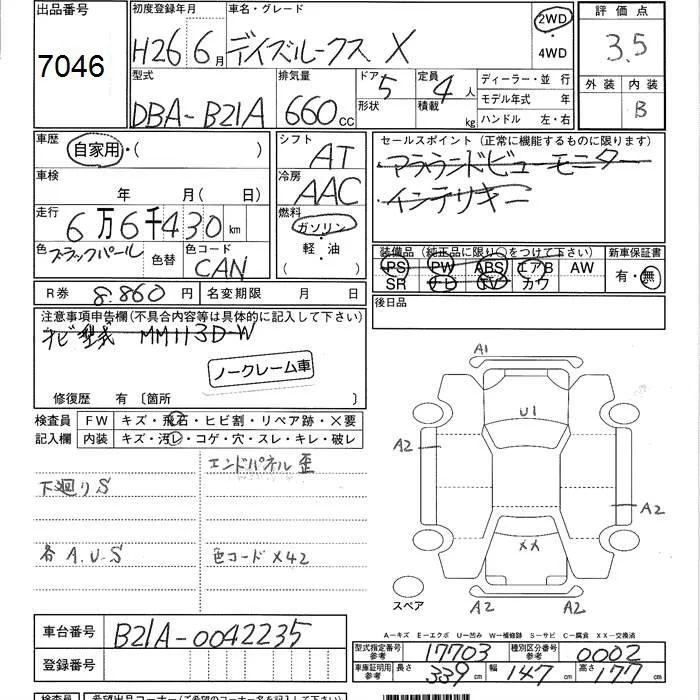 出品番号
7046
初度登録年月
H26 6月
車名・グレード
デイズルークス X
2WD
・
4WD
評価点
3.5
外装 内装
B
型式
DBA-B21A
排気量
660cc
ドア 5
形状
定員 4人
積載 kg
ディーラー・並行
モデル年式 年
ハンドル 左・右
車歴
自家用・( )
車検
年 月( 日)
走行
6万6千430km
色
ブラックパール
色替
色コード
CAN
シフト
AT
冷房
AAC
燃料
ガソリン
・
軽・油
・( )
セールスポイント(正常に機能するものに限ります)
・アラウンドビューモニター
・インテリキー
装備品(純正品に限り○をつけて下さい)
PS PW ABS エアB AW
SR ナビ TV カワ
新車保証書
有・無
後日品
R券 8.860円 名変期限 月 日
注意事項申告欄(不具合内容等は具体的に記入して下さい)
ナビ型式 MM113D-W
ノークレーム車
修復歴 有〔箇所 〕
検査員 FW キズ・飛石・ヒビ割・リペア跡・×要
記入欄 内装 キズ・汚レ・コゲ・穴・スレ・キレ・破レ
エンドパネル歪
下廻りS
各A.U.S
色コードX42
A1
U1
A2
A2
XX
A2 A2
スペア
A-キズ E-エクボ U-凹み W-補修跡 S-サビ C-腐食 XX-交換済
車台番号 B21A-0042235
登録番号
型式指定番号 参考 17703 種別区分番号 参考 0002
車庫証明用 参考 長さ 339 幅 147 高さ 177
検査員 希望出品コーナー(ご希望のコーナー